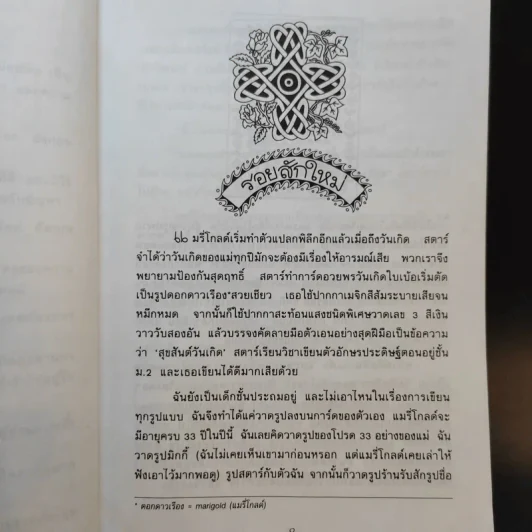 รอยสักใหม่
แมรี่โกลด์เริ่มทำตัวแปลกพิลึกอีกแล้วเมื่อถึงวันเกิด สตาร์
จำได้ว่าวันเกิดของแม่ทุกปีมักจะต้องมีเรื่องให้อารมณ์เสีย พวกเราจึง
พยายามป้องกันสุดฤทธิ์ สตาร์ทำการ์ดอวยพรวันเกิดใบเบ้อเริ่มตัด
เป็นรูปดอกดาวเรือง*สวยเชียว เธอใช้ปากกาเมจิกสีส้มระบายเสียจน
หมึกหมด จากนั้นก็ใช้ปากกาสะท้อนแสงชนิดพิเศษวาดเลข 3 สีเงิน
วาววับสองอัน แล้วบรรจงคัดลายมือตัวเอนอย่างสุดฝีมือเป็นข้อความ
ว่า 'สุขสันต์วันเกิด' สตาร์เรียนวิชาเขียนตัวอักษรประดิษฐ์ตอนอยู่ชั้น
ม.2 และเธอเขียนได้ดีมากเสียด้วย
ฉันยังเป็นเด็กชั้นประถมอยู่ และไม่เอาไหนในเรื่องการเขียน
ทุกรูปแบบ ฉันจึงทำได้แค่วาดรูปลงบนการ์ดของตัวเอง แมรี่โกลด์จะ
มีอายุครบ 33 ปีในปีนี้ ฉันเลยคิดวาดรูปของโปรด 33 อย่างของแม่ ฉัน
วาดรูปมิกกี้ (ฉันไม่เคยเห็นเขามาก่อนหรอก แต่แมรี่โกลด์เคยเล่าให้
ฟังเอาไว้มากพอดู) รูปสตาร์กับตัวฉัน จากนั้นก็วาดรูปร้านรับสักรูปชื่อ
* ดอกดาวเรือง = marigold (แมรี่โกลด์)